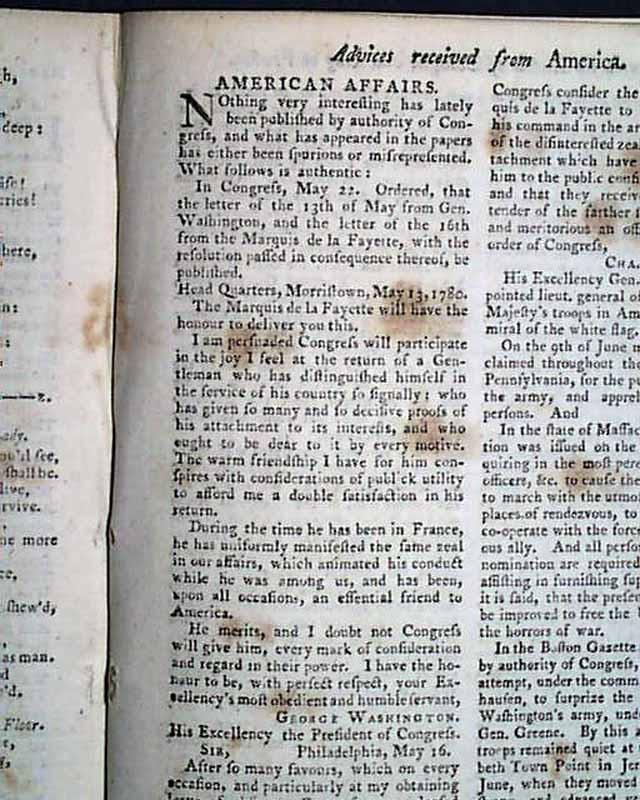 h,
deep:
ife!
cries!
here,
in:
:
z.
ady.
ou'd see,
shall be.
live,
rvive.
ne more
ce,
shew'd,
as man.
d
'd.
Floor.
t,
Advices received from America.
AMERICAN AFFAIRS.
NOthing very interesting has lately
been published by authority of Con-
gress, and what has appeared in the papers
has either been spurious or misrepresented.
What follows is authentic:
In Congress, May 22. Ordered, that
the letter of the 13th of May from Gen.
Washington, and the letter of the 16th
from the Marquis de la Fayette, with the
resolution passed in consequence thereof, be
published.
Head Quarters, Morristown, May 13, 1780.
The Marquis de la Fayette will have the
honour to deliver you this.
I am persuaded Congress will participate
in the joy I feel at the return of a Gen-
tleman who has distinguished himself in
the service of his country so signally: who
has given so many and so decisive proofs of
his attachment to its interests, and who
ought to be dear to it by every motive.
The warm friendship I have for him con-
spires with considerations of publick utility
to afford me a double satisfaction in his
return.
During the time he has been in France,
he has uniformly manifested the same zeal
in our affairs, which animated his conduct
while he was among us, and has been,
upon all occasions, an essential friend to
America.
He merits, and I doubt not Congress
will give him, every mark of consideration
and regard in their power. I have the ho-
nour to be, with perfect respect, your Ex-
cellency's most obedient and humble servant,
GEORGE WASHINGTON.
His Excellency the President of Congress.
SIR, Philadelphia, May 16.
After so many favours, which on every
occasion, and particularly at my obtaining
Congress consider the
quis de la Fayette to
his command in the ar
of the disinterested zea
tachment which have
him to the public confi
and that they receive
tender of the farther
and meritorious an off
order of Congress,
CHA.
His Excellency Gen.
pointed lieut. general o
Majesty's troops in Am
miral of the white flag.
On the 9th of June
claimed throughout the
Pennsylvania, for the p
the army, and appreh
persons. And
In the state of Massac
tion was issued on the
quiring in the most pere
officers, &c. to cause the
to march with the utmo
places of rendezvous, to
co-operate with the force
ous ally. And all perso
nomination are required
assisting in furnishing sup
it is said, that the presen
be improved to free the
the horrors of war.
In the Boston Gazette
by authority of Congress,
attempt, under the comm
hausen, to surprize the
Washington's army, und
Gen. Greene. By this a
troops remained quiet at
beth Town Point in Jer
June, when they moved